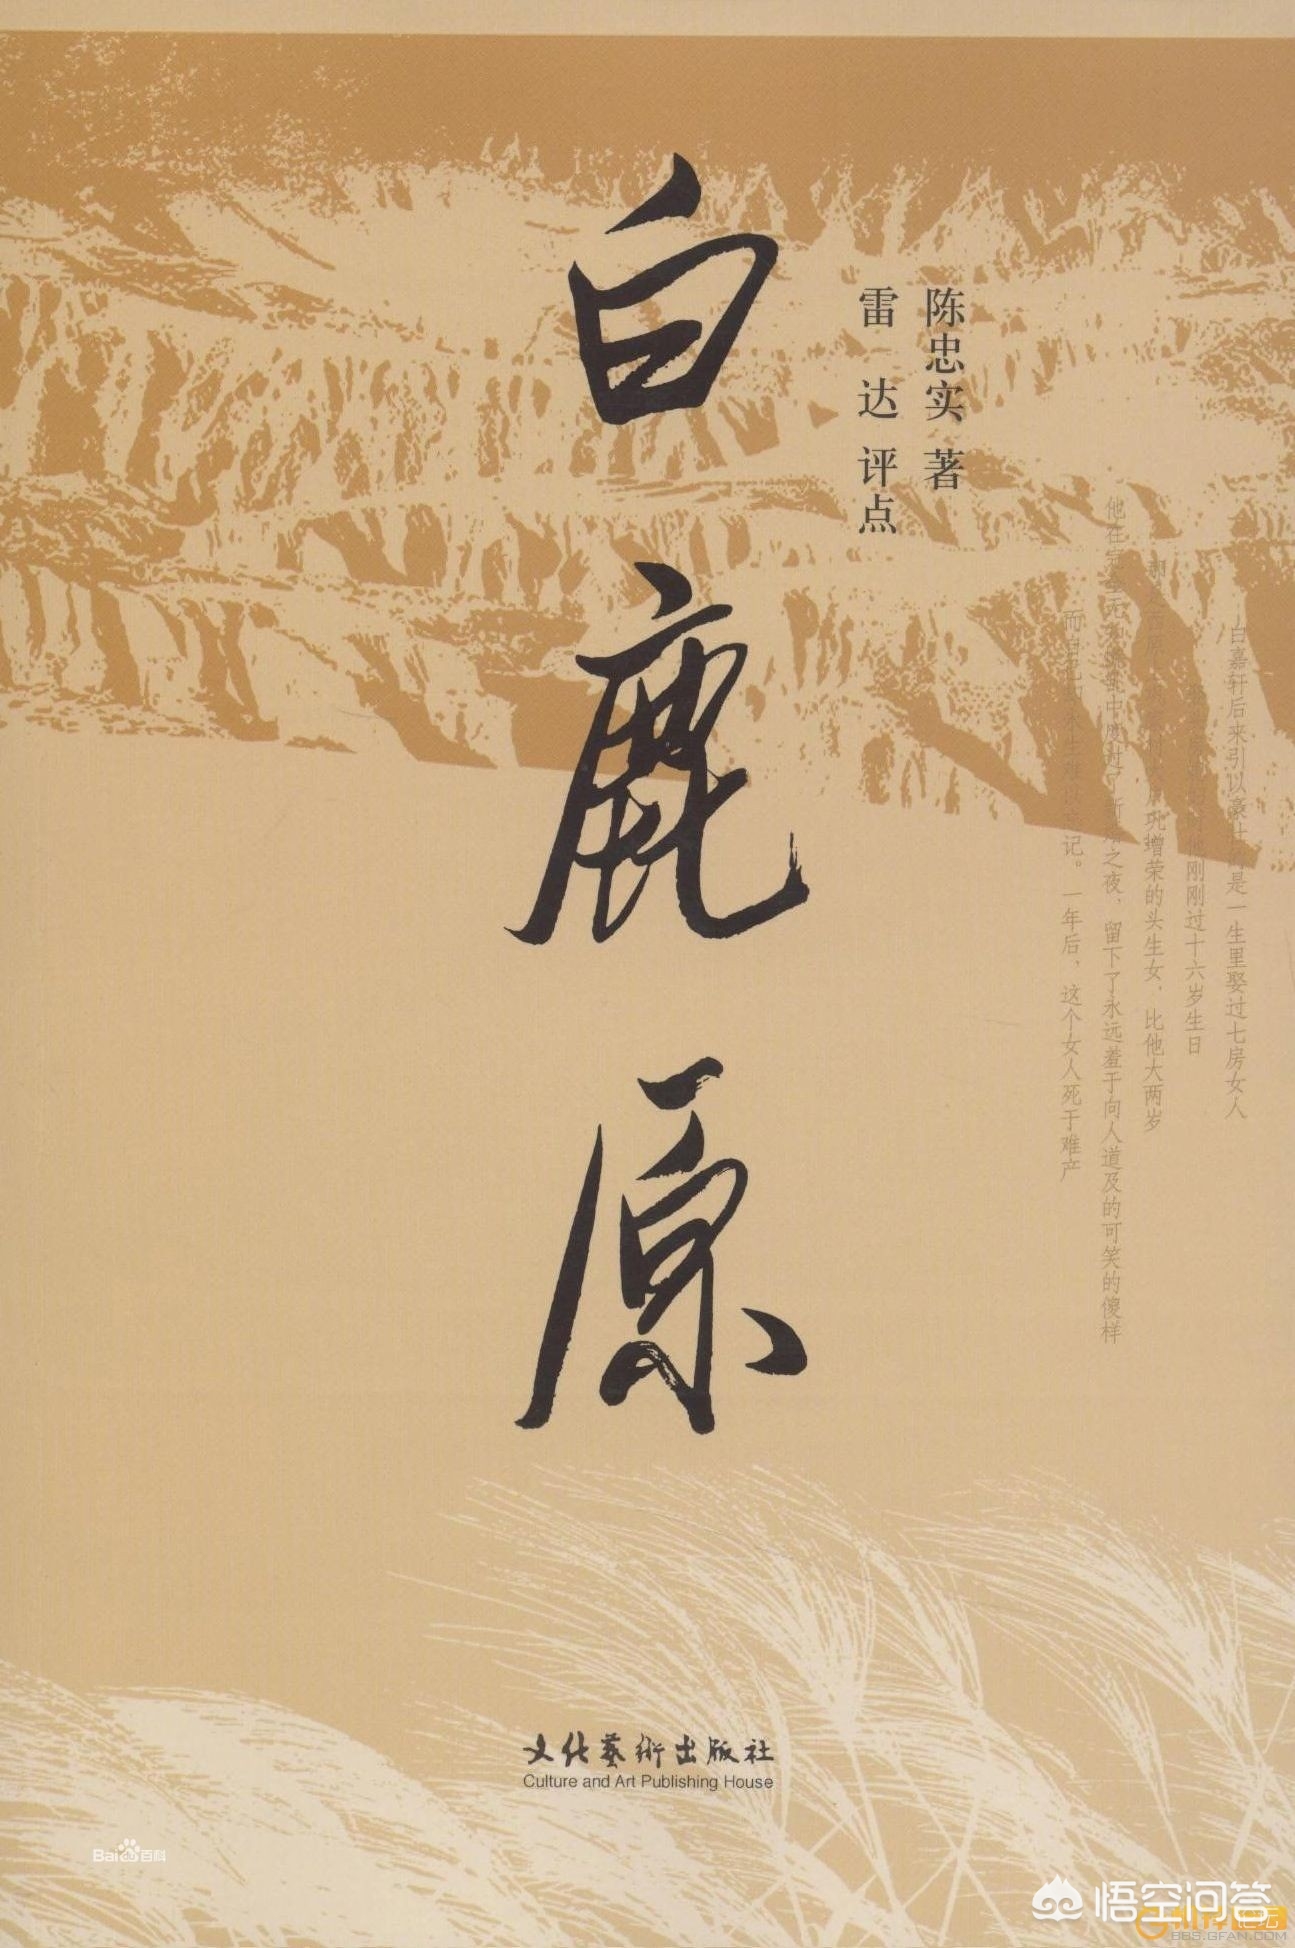 白鹿原
陈忠实 著
雷 达 评点
白嘉轩后来引以豪壮的是一生里娶过七房女人
他刚刚过十六岁生日
巩增荣的头生女，比他大两岁
他在完全无知慌乱中度过了新婚之夜，留下了永远羞于向人道及的可笑的傻样
而自己却永生难以忘记。一年后，这个女人死于难产
文化藝術出版社
Culture and Art Publishing House
Baidu百科
悟空问答
BBS.GFAN.COM